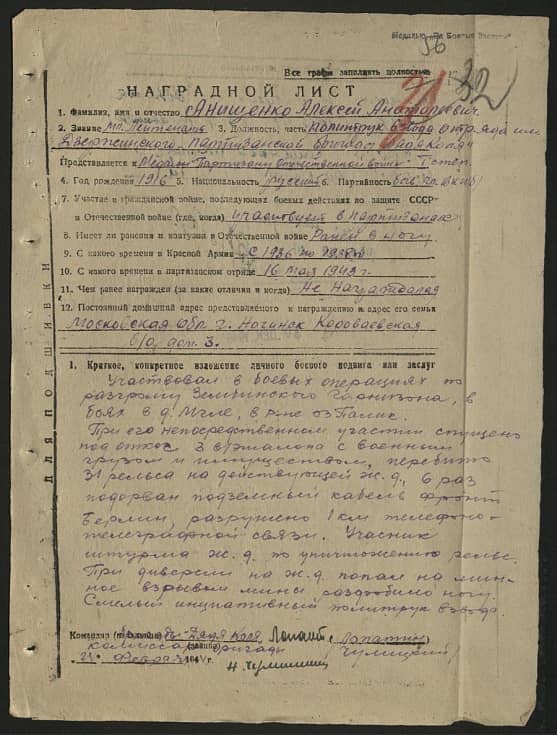 Медалью „За Боевые Заслуги"
56
32
Все графы заполнять полностью
НАГРАДНОЙ ЛИСТ
1. Фамилия, имя и отчество Анищенко Алексей
2. Звание мл. Лейтенант 3. Должность, часть Политрук взвода отряда им
Дзержинского партизанской бригады
Представляется к Медали "Партизану Отечественной войны" I степ.
4. Год рождения 1916 5. Национальность Русский 6. Партийность
7. Участие в гражданской войне, последующих боевых действиях по защите СССР
и Отечественной войне (где, когда) участвует в
8. Имеет ли ранения и контузии в Отечественной войне Ранен в ногу
9. С какого времени в Красной Армии С 1936 по
10. С какого времени в партизанском отряде 16 мая 1943 г.
11. Чем ранее награжден (за какие отличия и когда) Не Награждался
12. Постоянный домашний адрес представляемого к награждению и адрес его семьи
Московская Обл. г. Ногинск
дом. 3.
ДЛЯ ПОДШИВКИ
1. Краткое, конкретное изложение личного боевого подвига или заслуг
Участвовал в боевых операциях по
разгрому Зембинского гарнизона, в
боях в д. Мгле, в р-не оз Палик.
При его непосредственном участии спущено
под откос 3 эшалона с военным
грузом и имуществом, перебито
31 рельса на действующей ж.д., 6 раз
подорван подземный кабель фронт
Берлин, разрушено 1 км телефоно-
телеграфной связи. Участник
штурма ж.д. по уничтожению рельс.
При диверсии на ж.д. попал на мин-
ное взрывом мины раздробило ногу.
Смелый инциативный политрук взвода.
Командир Дядя Коля (Лопатин)
комиссар бригады
Февраля 194